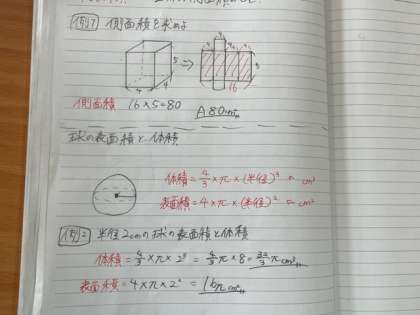 例1 側面積を求めよ
5
4 4
4 4 4 4
5
16
側面積 16×5=80
A 80cm²
球の表面積と体積
体積 = 4/3 × π × (半径)³ = cm³
表面積 = 4 × π × (半径)² = cm²
例2 半径2cmの球の表面積と体積
体積 = 4/3 × π × 2³ = 4/3 π × 8 = 32/3 π cm³
表面積 = 4 × π × 2² = 16π cm²